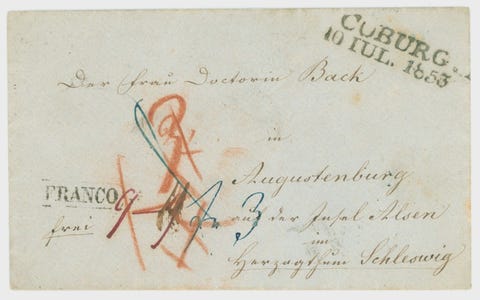 COBURG
10 IUL. 1853
Der Frau Doctorin Back
in
Augustenburg
FRANCO
auf der Insel Alsen
frei
3
im
Herzogthum Schleswig